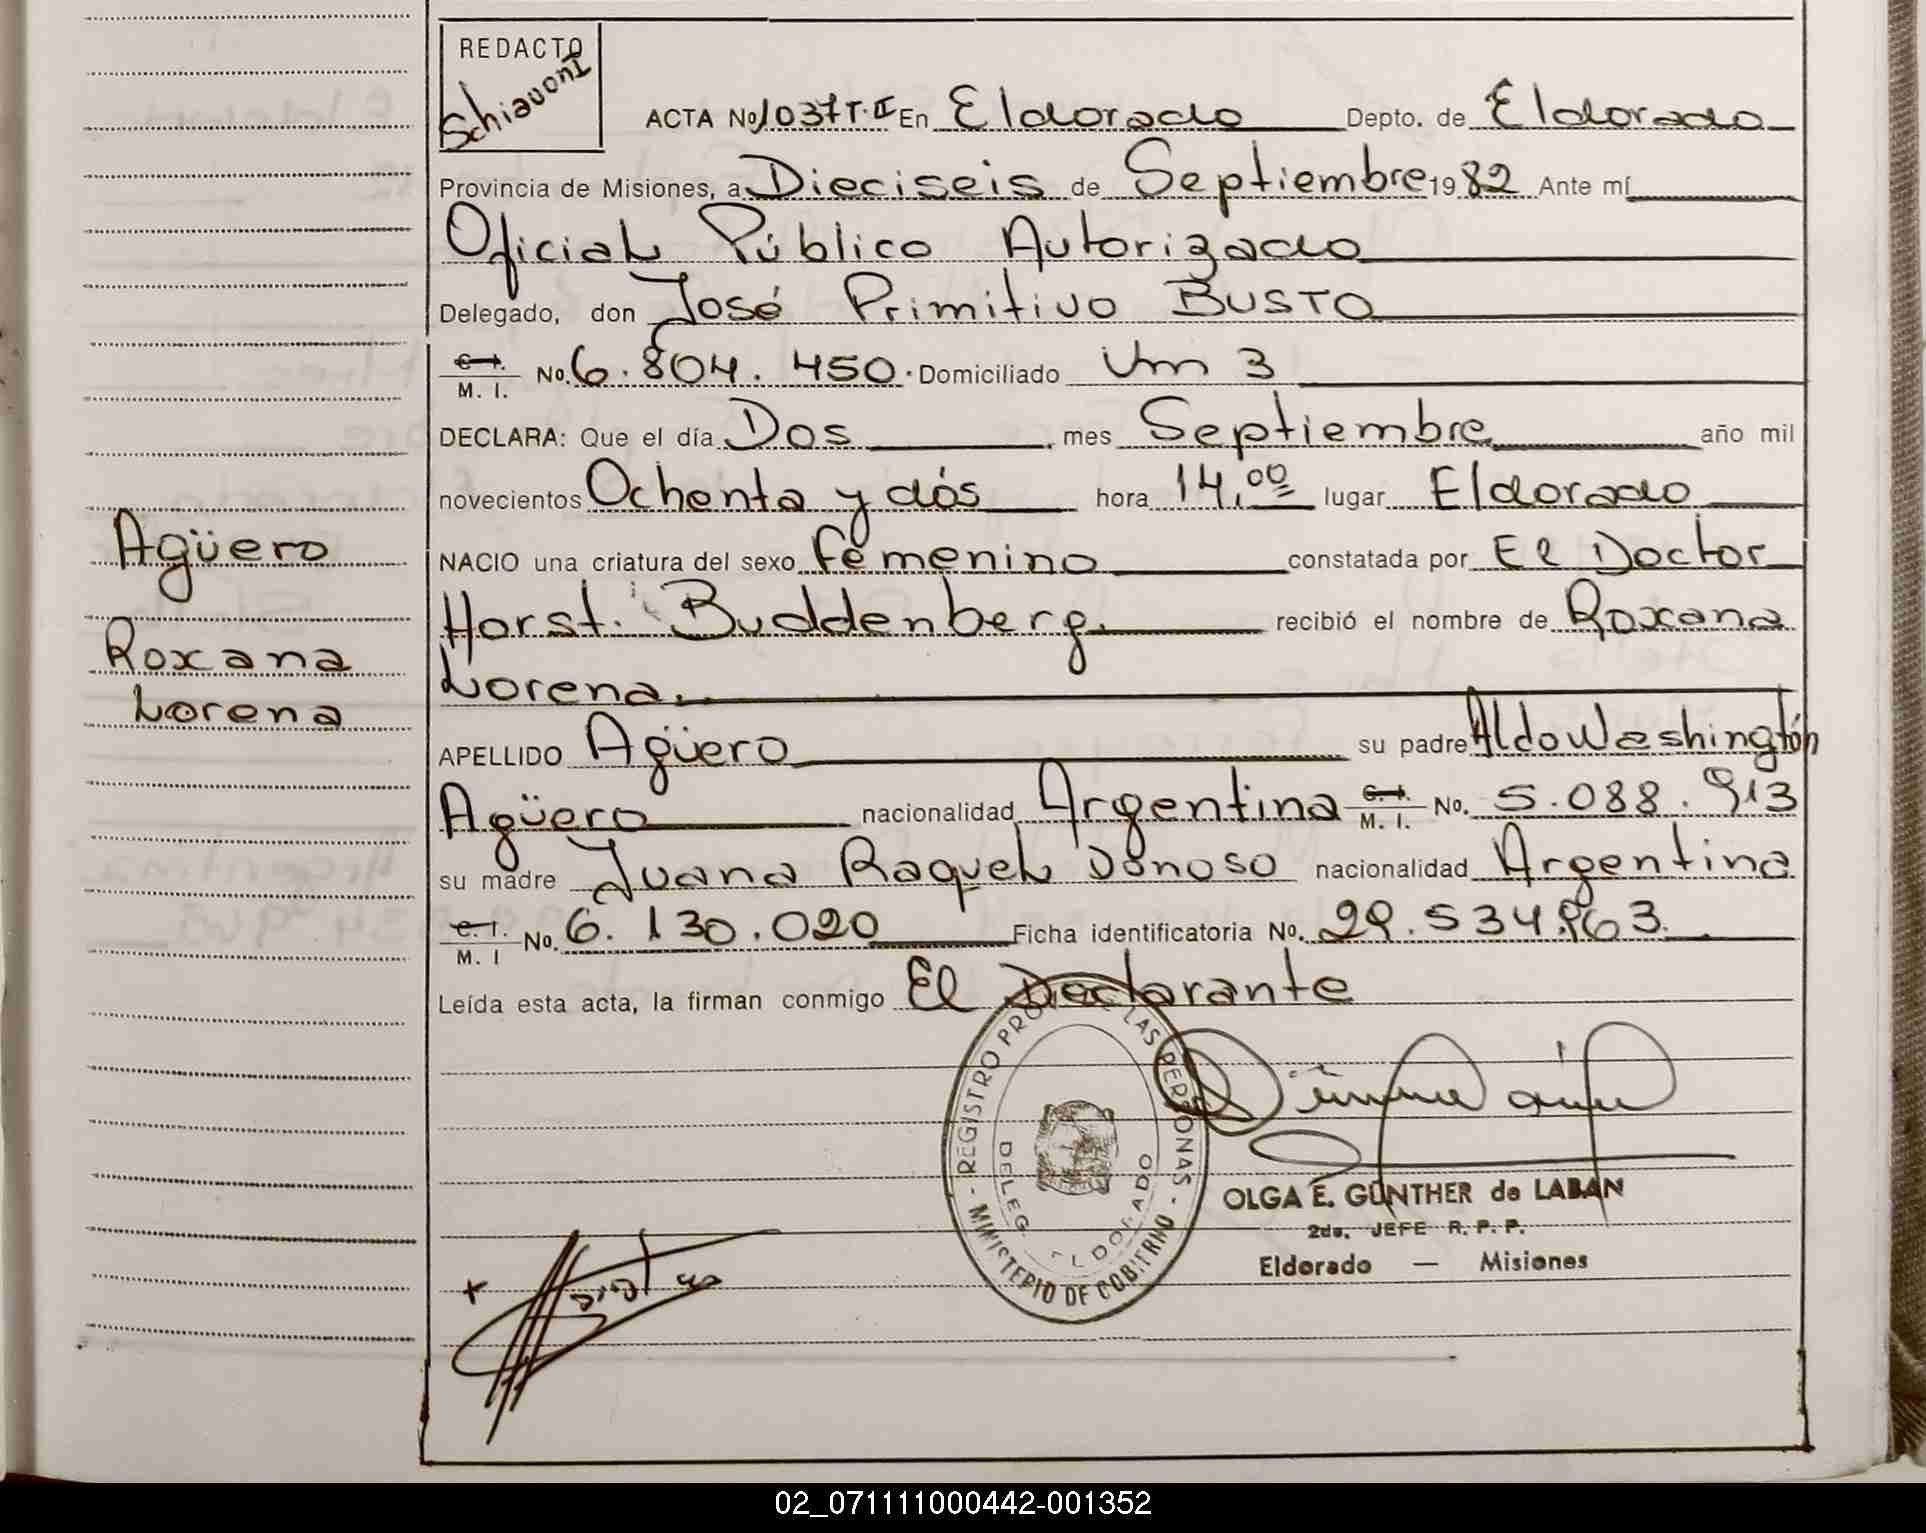 REDACTO
Schiavoni
ACTA No 1037 T. II En Eldorado Depto. de Eldorado
Provincia de Misiones, a Dieciseis de Septiembre 1982 Ante mí
Oficial Público Autorizado
Delegado, don José Primitivo BUSTO
C. I. M. I. No. 6.804.450. Domiciliado Km 3
DECLARA: Que el día Dos mes Septiembre año mil
novecientos Ochenta y dós hora 14,00 lugar Eldorado
NACIO una criatura del sexo femenino constatada por El Doctor
Horst. Buddenberg. recibió el nombre de Roxana
Lorena.
Agüero
Roxana
Lorena
APELLIDO Agüero su padre Aldo Washingtón
Agüero nacionalidad Argentina C. I. M. I. No. 5.088.913
su madre Juana Raquel Donoso nacionalidad Argentina
C. I. M. I No. 6.130.020 Ficha identificatoria No. 29.534.963.
Leída esta acta, la firman conmigo El Declarante
REGISTRO PROV. DE LAS PERSONAS - MINISTERIO DE GOBIERNO -
DELEG. ELDORADO
OLGA E. GÜNTHER de LABAN
2do. JEFE R. P. P.
Eldorado — Misiones
02_071111000442-001352